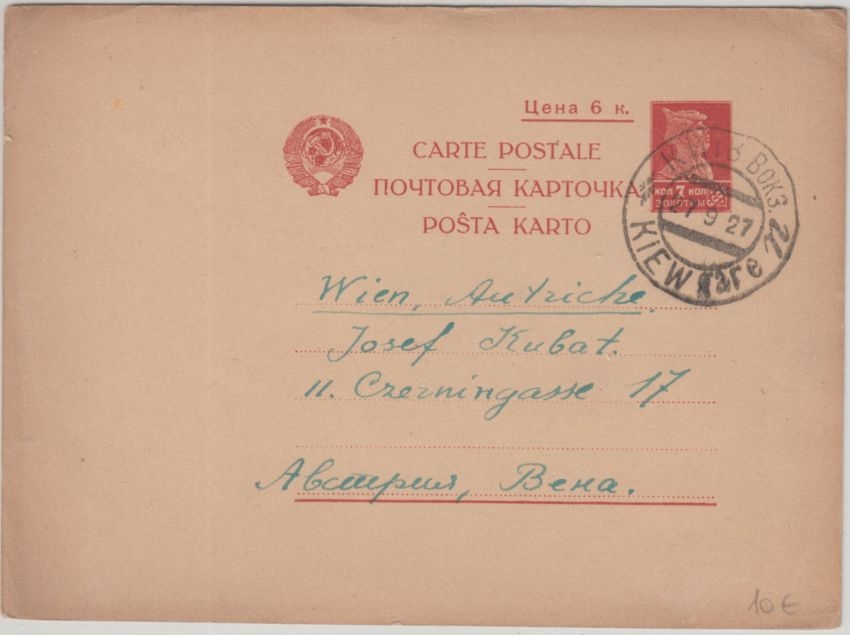 Цена 6 к.
CARTE POSTALE
ПОЧТОВАЯ КАРТОЧКА
POŜTA KARTO
КОП 7 КОП
ЗОЛОТОМ
ВОКЗ.
9 27
KIEW gare
Wien, Autriche.
Josef Kubat.
II. Czerningasse 17
Австрия, Вена.
10 €